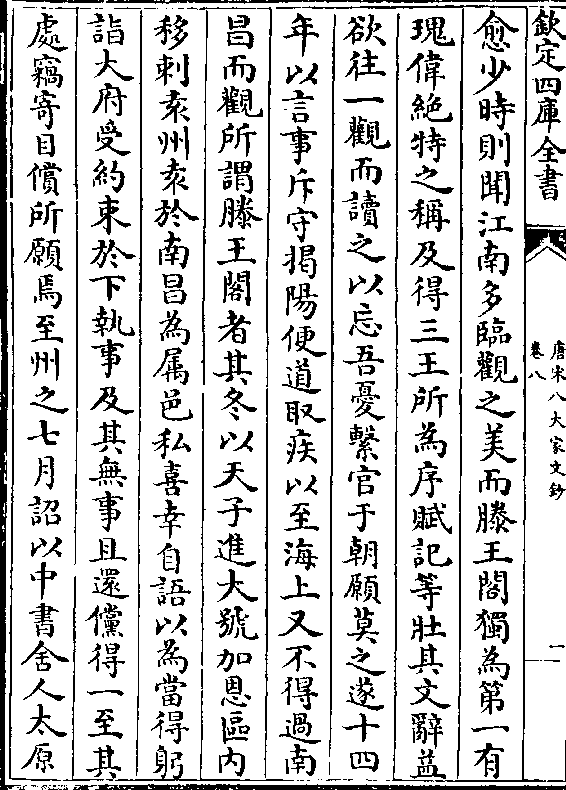 欽定四庫全書
唐宋八大家文鈔
卷八
一
愈少時則聞江南多臨觀之美而滕王閣獨為第一有
瑰偉絶特之稱及得三王所為序賦記等壯其文辭益
欲往一觀而讀之以忘吾憂繫官于朝願莫之遂十四
年以言事斥守揭陽便道取疾以至海上又不得過南
昌而觀所謂滕王閣者其冬以天子進大號加恩區内
移刺袁州袁於南昌為属邑私喜幸自語以為當得躬
詣大府受約束於下執事及其無事且還儻得一至其
處竊寄目償所願焉至州之七月詔以中書舍人太原